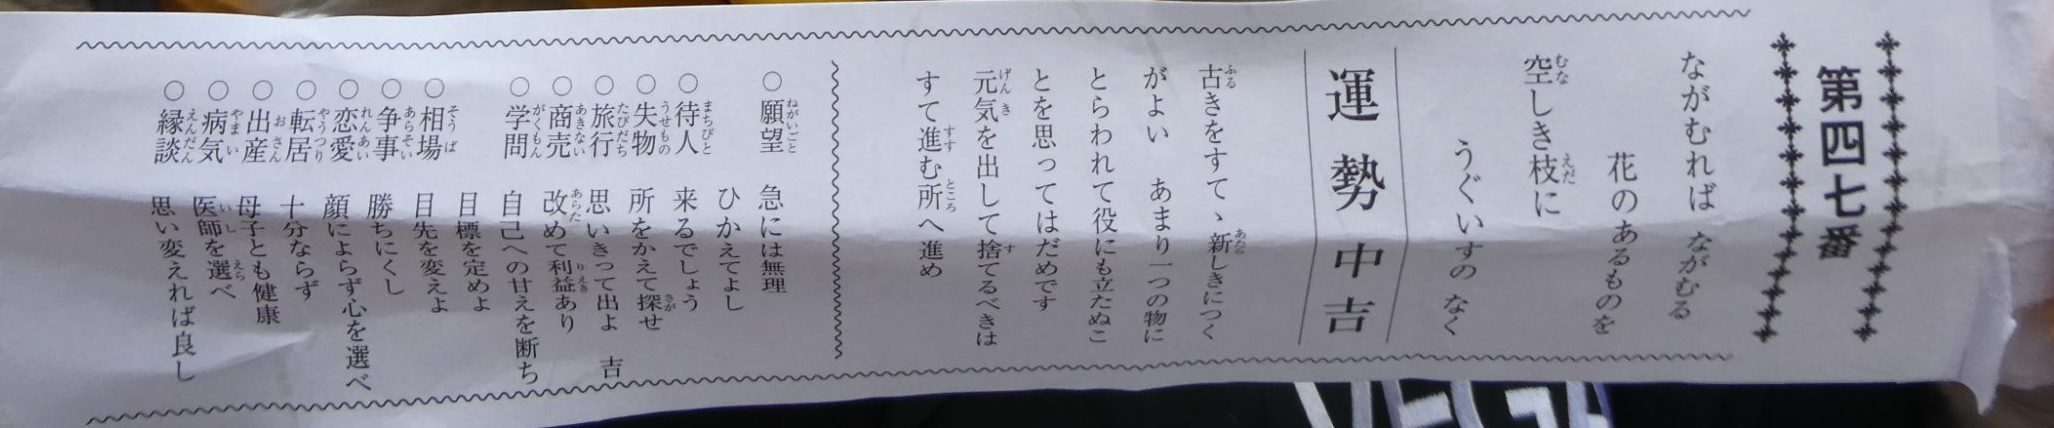 第四七番
ながむれば ながむる
花のあるものを
空しき枝に
うぐいすの なく
運勢 中吉
古きをすて、新しきにつく
がよい あまり一つの物に
とらわれて役にも立たぬこ
とを思ってはだめです
元気を出して捨てるべきは
すて進む所へ進め
○願望 急には無理
ひかえてよし
○待人 来るでしょう
○失物 所をかえて探せ
○旅行 思いきって出よ 吉
○商売 改めて利益あり
○学問 自己への甘えを断ち
目標を定めよ
○相場 目先を変えよ
○争事 勝ちにくし
○恋愛 顔によらず心を選べ
○転居 十分ならず
○出産 母子とも健康
○病気 医師を選べ
○縁談 思い変えれば良し
VEGA